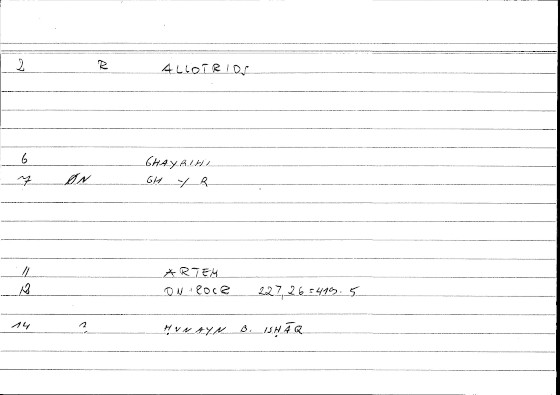 2 R ALLOTRIOS
6 GHAYRIHI
7 ØN GH Y R
11 ARTEM
12 ON:ROCR 227,26=419.5
14 1 ḤUNAYN B. ISḤĀQ